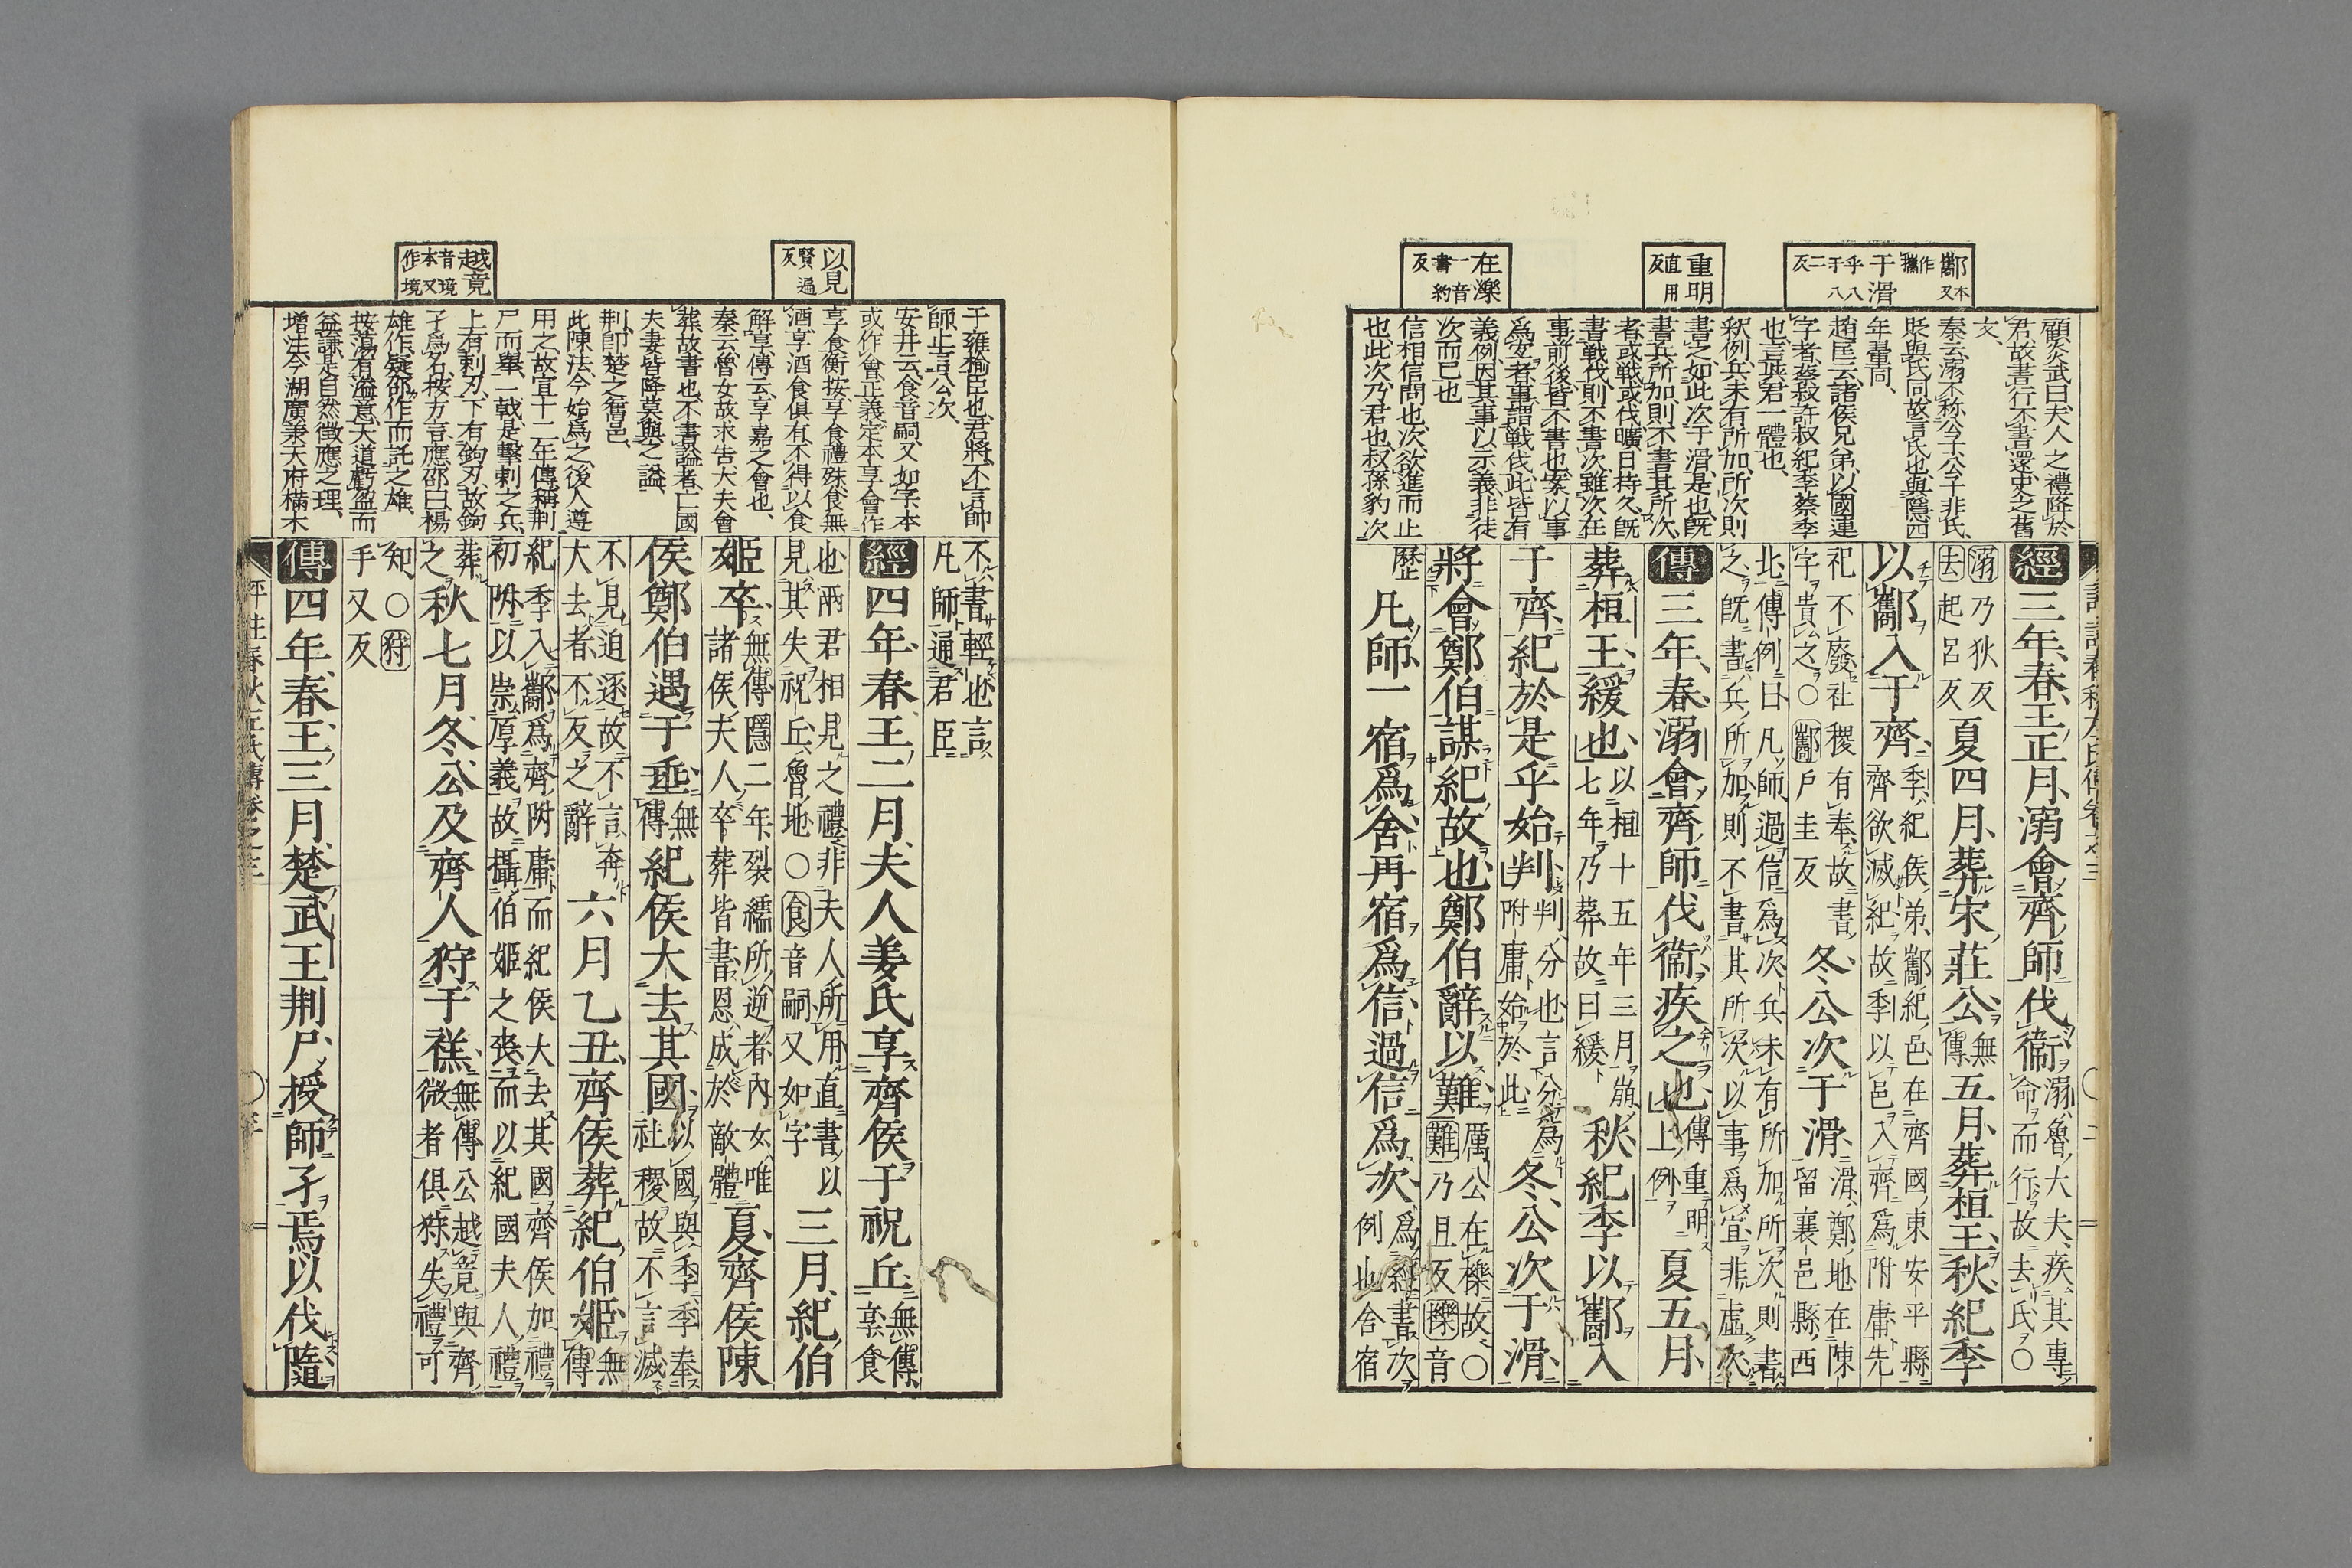 酅
本又作攜
于滑
乎八于八二反
重明
直用反
在櫟
一音書約反
顧炎武曰夫人之禮降於
君故書行不書還史之舊
文
秦云溺不称公子公子非氏
貶與氏同故言氏也與隱四
年翬同
趙匡云諸侯兄弟以國連
字者蔡叔許叔紀季蔡季
也言與君一體也
釈例兵未有所加所次則
書之如此次于滑是也既
書兵所加則不書其所次
者或戦或伐曠日持久既
書戦伐則不書次雖次在
事前後皆不書也案以事
爲宜者事謂戦伐此皆有
義例因其事以示義非徒
次而已也
信相信問也次欲進而止
也此次乃君也叔孫豹次
經三年春王正月溺會齊師伐衞溺魯大夫疾其專
命而行故去氏〇
溺乃狄反
去起呂反夏四月葬宋莊公無
傳五月葬桓王秋紀季
以酅入于齊季紀侯弟酅紀邑在齊國東安平縣
齊欲滅紀故季以邑入齊爲附庸先
祀不廢社稷有奉故書
字貴之〇酅戶圭反冬公次于滑滑鄭地在陳
留襄邑縣西
北傳例曰凡師過信爲次兵未有所加所次則書
之既書兵所加則不書其所次以事爲宜非虛次
傳三年春溺會齊師伐衞疾之也傳重明
上例夏五月
葬桓王緩也以桓十五年三月崩
七年乃葬故曰緩秋紀季以酅入
于齊紀於是乎始判判分也言分爲
附庸始於此冬公次于滑
將會鄭伯謀紀故也鄭伯辭以難厲公在櫟故〇
難乃且反櫟音
歷凡師一宿爲舍再宿爲信過信爲次爲經書次
例也舍宿
以見
賢遍反
越竟
音境本又作境
于雍榆臣也君將不言帥
師止言公次
安井云食音嗣又如字本
或作會正義定本享會作
享食衡按享食禮殊食無
酒享酒食俱有不得以食
解享傳云享嘉之會也
秦云魯女故求告大夫會
葬故書也不書謚者亡國
夫妻皆降莫與之謚
荆即楚之舊邑
此陳法今始爲之後人遵
用之故宣十二年傳稱荆
尸而舉一戟是擊剌之兵
上有剌刃下有鉤刃故鉤
孑爲名按方言應邵曰楊
雄作疑邵作而託之雄
按蕩有溢意天道虧盈而
益謙是自然徴應之理
增注今湖廣承天府樠木
不書輕也言
凡師通君臣
經四年春王二月夫人姜氏享齊侯于祝丘無傳
享食
也兩君相見之禮非夫人所用直書以
見其失祝丘魯地〇食音嗣又如字三月紀伯
姬卒無傳隱二年裂繻所逆者內女唯
諸侯夫人卒葬皆書恩成於敵體夏齊侯陳
侯鄭伯遇于垂無
傳紀侯大去其國以國與季季奉
社稷故不言滅
不見迫逐故不言奔
大去者不反之辭六月乙丑齊侯葬紀伯姬無
傳
紀季入酅爲齊附庸而紀侯大去其國齊侯加禮
初附以崇厚義故攝伯姬之喪而以紀國夫人禮
葬之秋七月冬公及齊人狩于禚無傳公越竟與齊
微者俱狩失禮可
知〇狩
手又反
傳四年春王三月楚武王荆尸授師孑焉以伐隨